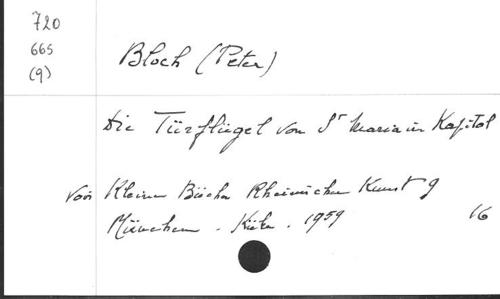 720
665
(9)
Bloch (Peter)
Die Türflügel von St Maria im Kapitol
voir Kleine Bücher Rheinischer Kunst 9
München . . 1959
16